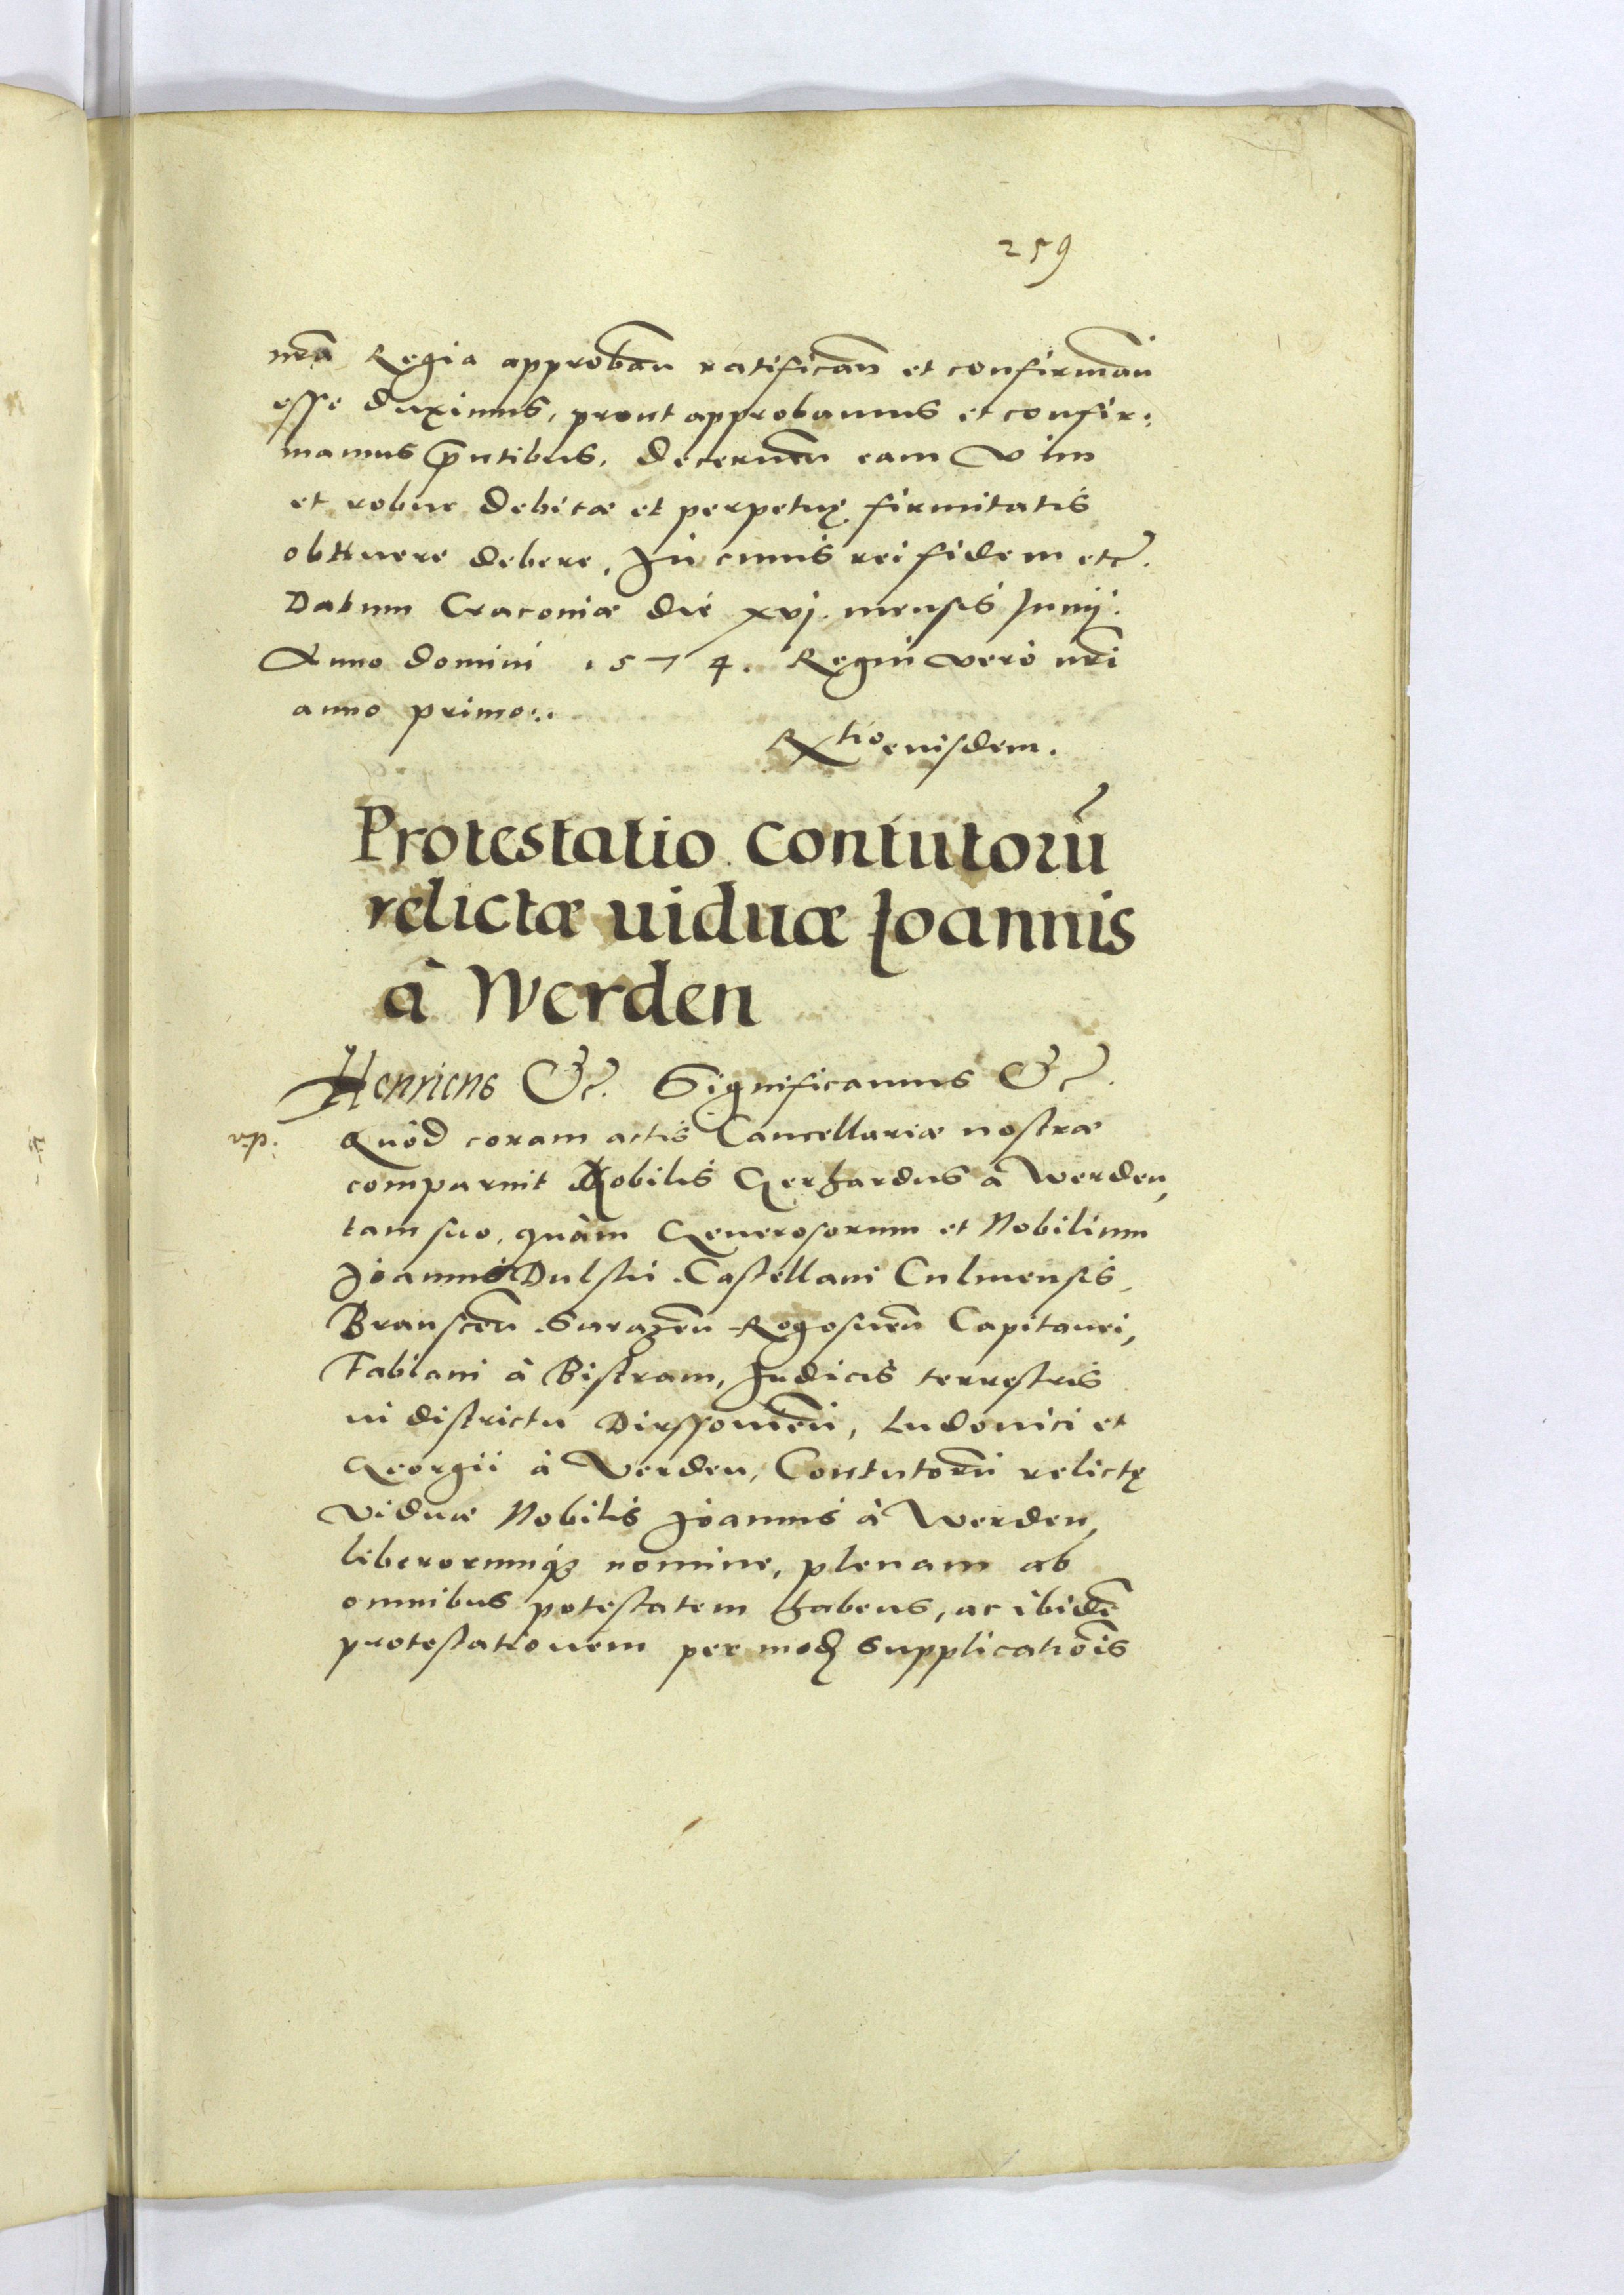 259
nr̃a Regia approban̄ ratifican̄ et confirman̄
esse duximus, prout approbamus et confir:
mamus p̄ntibus. Decernen̄ eam vim
et robur debitæ et perpetuę firmitatis
obtinere debere. In cuius rei fidem etc.
Datum Cracoviæ die xvj. mensis Junij.
Anno domini 1574. Regni vero nr̃i
anno primo:.
Rtio eiusdem.
Protestatio contutorū
relictæ viduæ Joannis
à Werden
Henricus &c. Significamus &c.
Quòd coram actis Cancellariæ nostræ
v.p:
comparuit Nobilis Gerhardus à Werden,
tam suo, quàm Generosorum et Nobilium
Joannis Dulski Castellani Culmensis,
Branscen̄ Surazen̄ Rogosnen̄ Capitanei,
Fabiani à Bistram, Judicis terrestris
in districtu Dirssovien̄, Ludovici et
Georgii à Verden, Contutorū relictę
viduæ Nobilis Joannis à Werden,
liberorumqꝫ nomine, plenam ab
omnibus potestatem habens, ac ibidē
protestationem per modū supplicatiōis